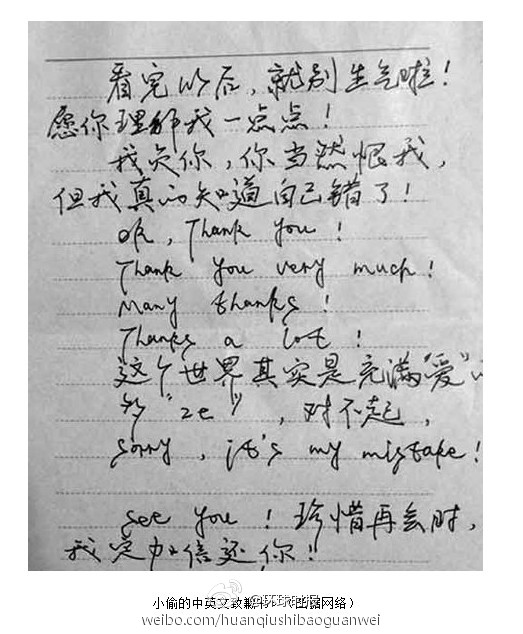 看完以后，就别生气啦！
愿你理解我一点点！
我负你，你当然恨我，
但我真的知道自己错了！
呃，Thank you！
Thank you very much！
Many thanks！
Thanks a lot！
这个世界其实是充满“爱”
“ze”，对不起，
sorry，it's my mistake！
see you！珍惜再会时，
我定加倍还你！
@环球时报
小偷的中英文致歉书
网络）
weibo.com/huanqiushibaoguanwei